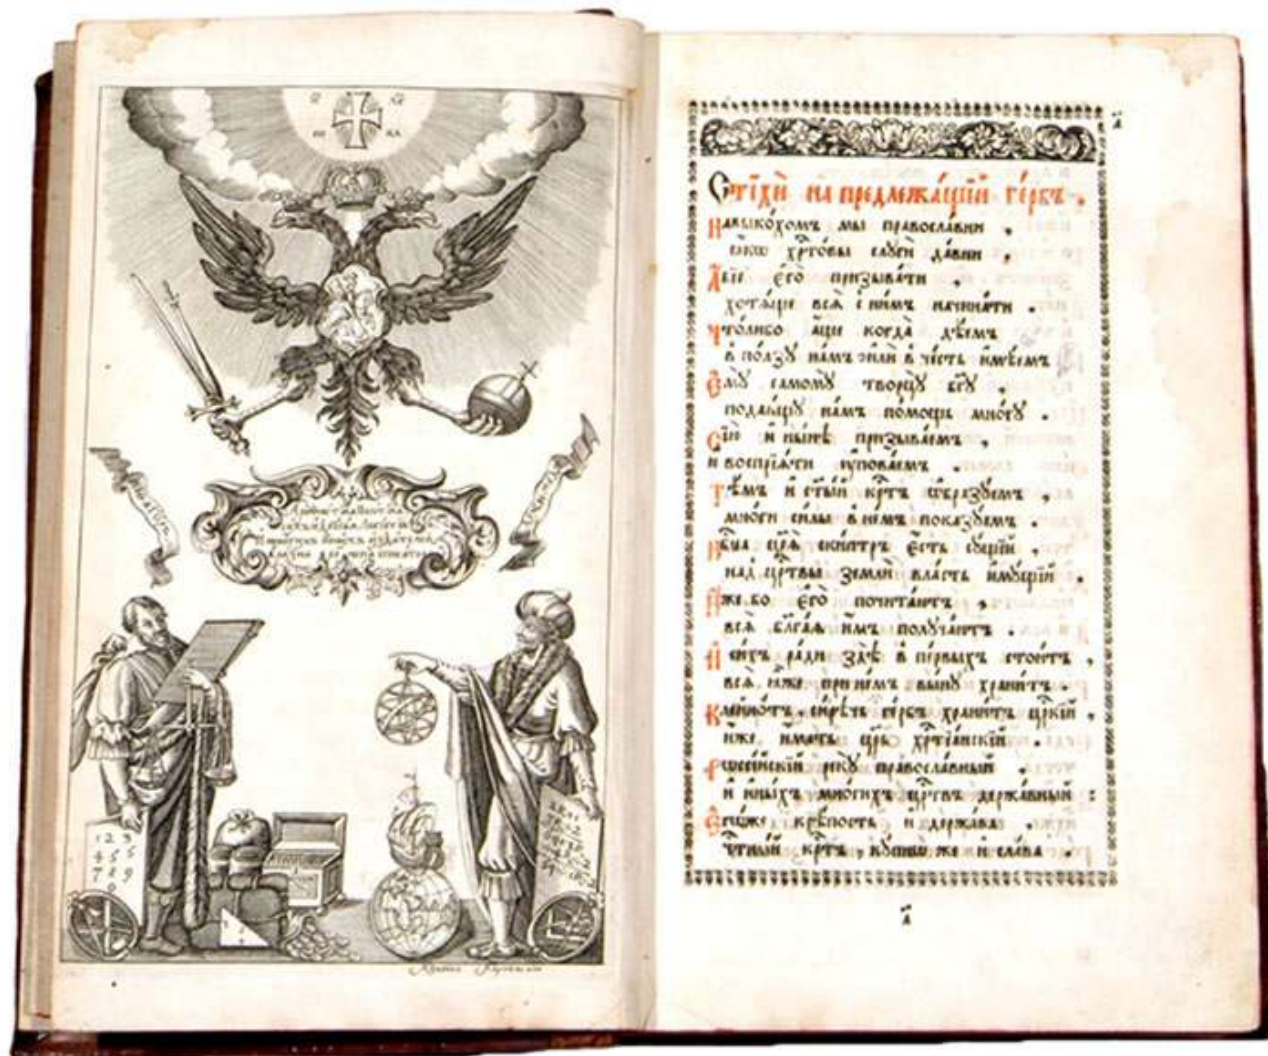 НИ КА
1 2 3
4 5 6
7 8 9
0
а҃
Стїхѝ на предлежа́щїй ге́рбъ .
Навыко́хомъ мы правосла́вни ,
ꙗ҆́кѡ хрⷭ҇то́вы слꙋги̑ да́вни ,
А҆́бїе є҆го̀ призыва́ти ,
хотѧ́ще всѧ̑ с ни́мъ начина́ти .
Что́либо а҆́ще когда̀ дѣ́емъ
в по́лзꙋ на́мъ и҆лѝ в че́сть и҆мѣ́емъ
Є҆мꙋ̀ самомꙋ̀ творцꙋ̀ бг҃ꙋ ,
подаю́щꙋ на́мъ по́мощь мно́гꙋ .
Сїѐ и҆ ны́нѣ призыва́емъ ,
и҆ воспрїѧ́ти ᲂу҆пова́емъ .
Тѣ́мъ и҆ ст҃ы́й крⷭ҇тъ ѡ҆бразꙋ́емъ ,
мно́ги си́лы в не́мъ показꙋ́емъ .
ски́птръ є҆́сть
над црⷭ҇твы землѝ вла́сть и҆мꙋ́щїй .
И҆̀же бо є҆го̀ почита́ютъ ,
всѧ̑ бл҃га́ѧ и҆̀мъ полꙋча́ютъ .
И҆ си́хъ ра́ди здѣ̀ в пе́рвыхъ стои́тъ ,
всѧ̑ ꙗ҆̀же при не́мъ вы́нꙋ храни́тъ .
Клейно́тъ , си́рѣчь ге́рбъ храни́тъ црⷭ҇кїй ,
и҆́же и҆́мать цр҃ь хрⷭ҇тїа́нскїй .
Рѡссі́йскїй рекꙋ̀ правосла́вный ,
и҆ и҆ны́хъ мно́гихъ црⷭ҇твъ держа́вный :
Є҆мꙋ́же крѣ́пость и҆ держа́ва ,
крⷭ҇тъ , кꙋ́пнѡ же и҆ сла́ва .
а҃